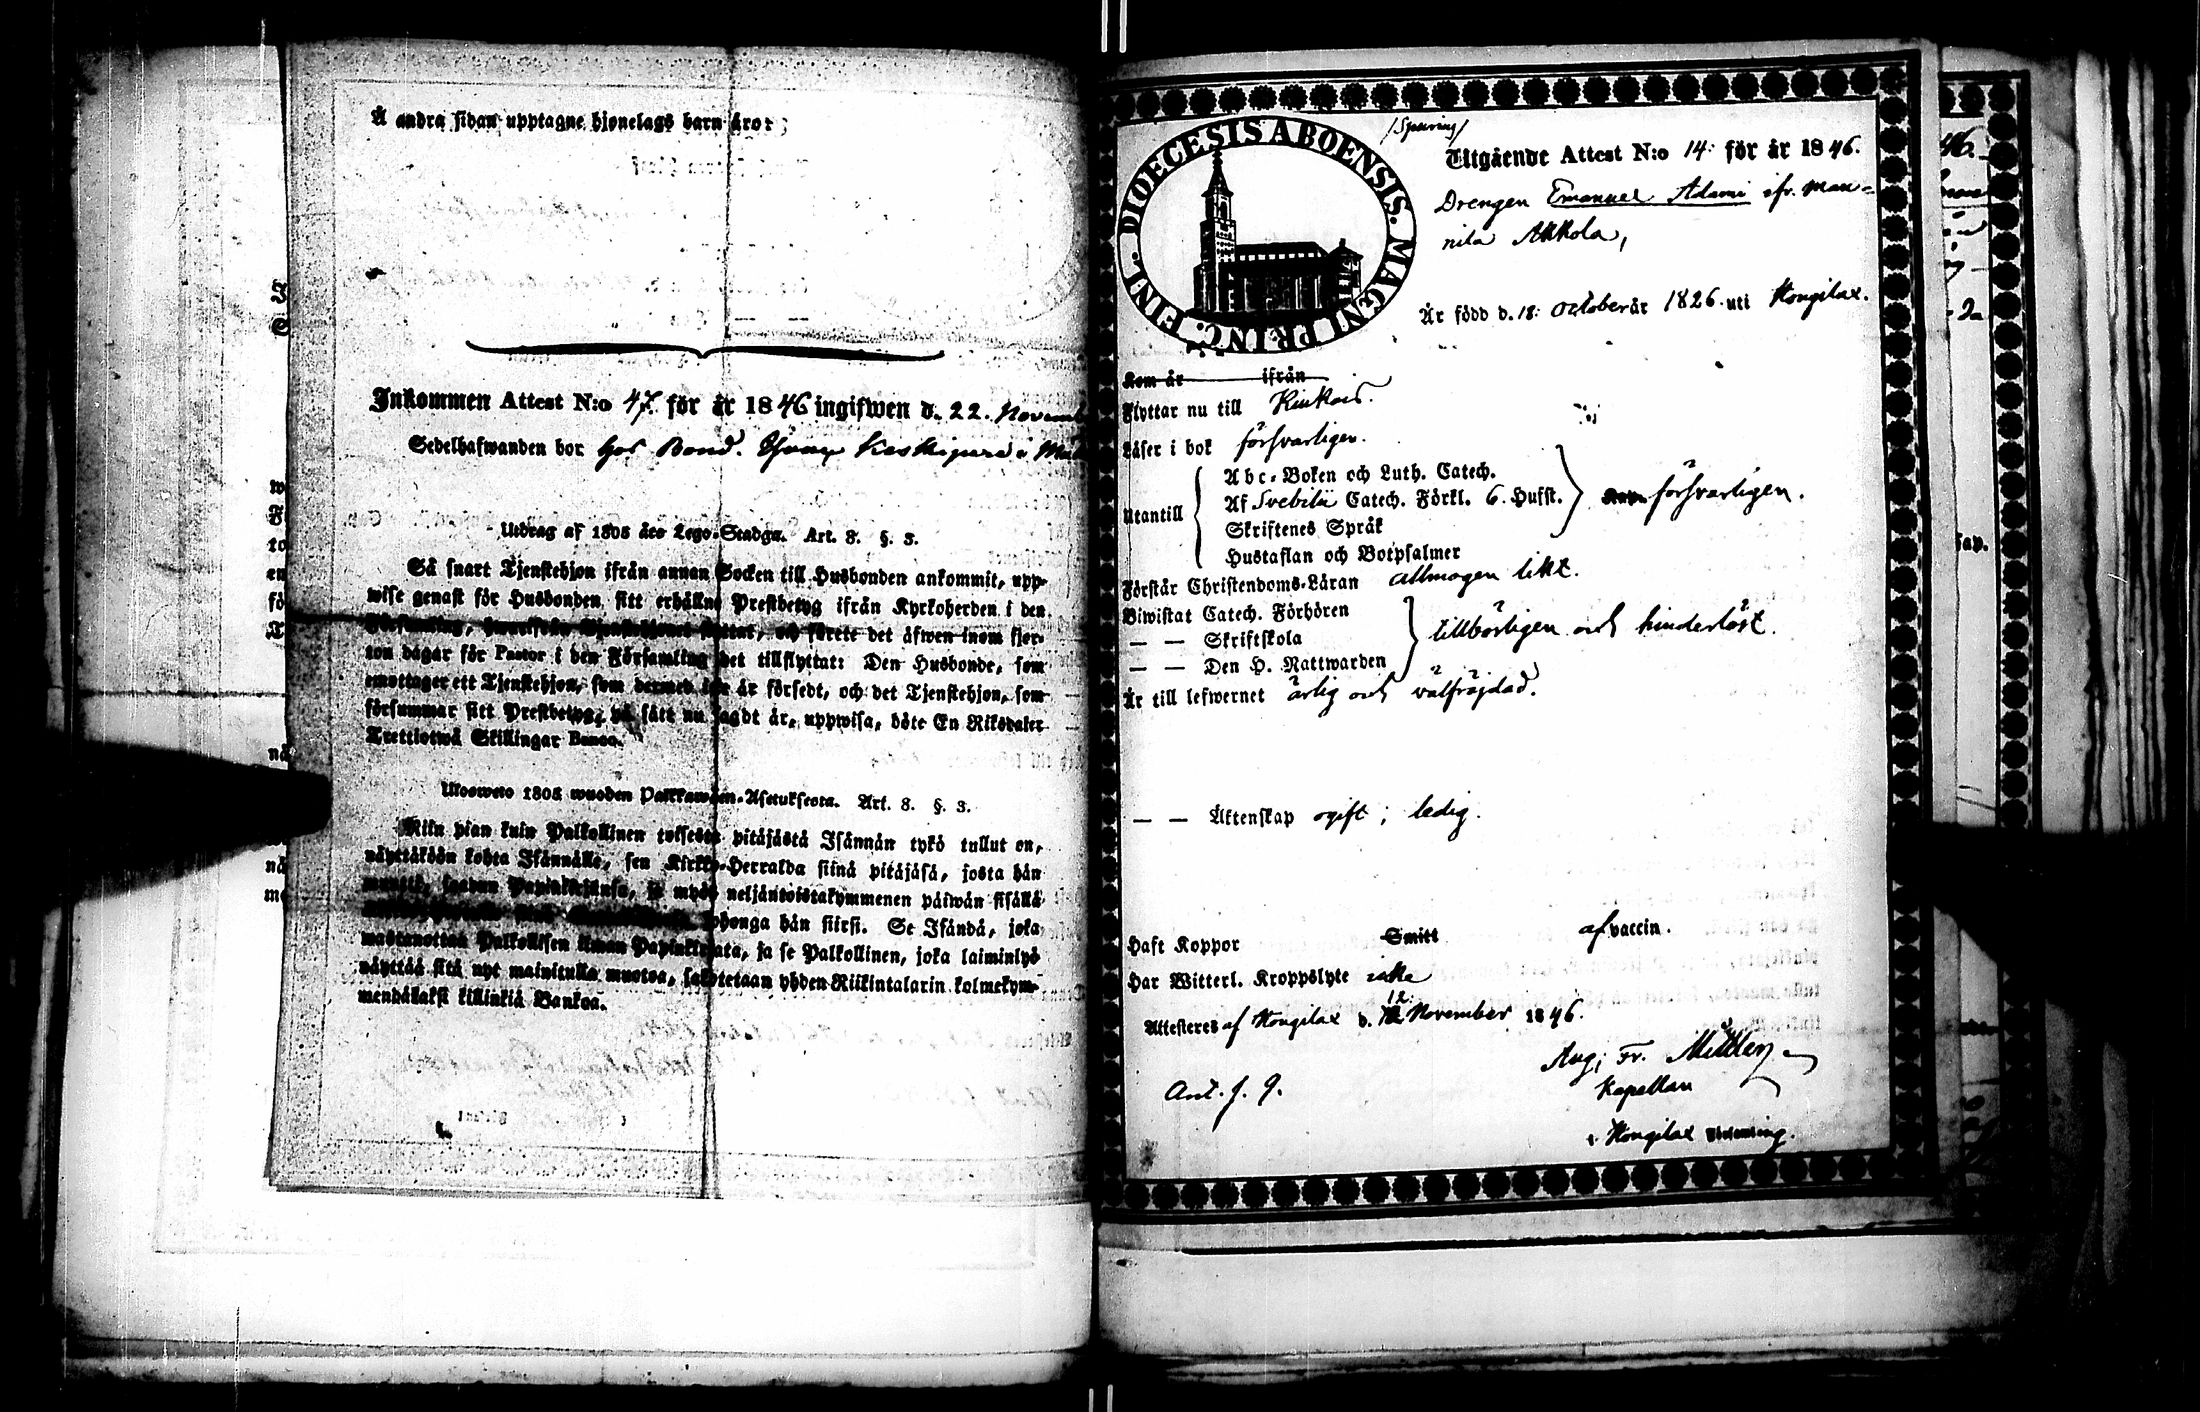 Å andra sidan upptagne hjonelags barn äro:
Inkommen Attest N:o 47. för år 1846 ingifwen d. 22. Novemb
Sedelhafwanden bor hos Bond.
Utdrag af 1805 års Lego-Stadga. Art. 8. §. 3.
Så snart Tjenstehjon ifrån annan Socken till Husbonden ankommit, upp-
wise genast för Husbonden sitt erhållne Prestbetyg ifrån Kyrkoherden i den
Församling, hwarifrån Tjenstehjonet flyttat, och förete det äfwen inom fjor-
ton dagar för Pastor i den Församling det tillflyttat: Den Husbonde, som
emottager ett Tjenstehjon, som dermed icke är försedt, och det Tjenstehjon, som
försummar sitt Prestbetyg, på sätt nu sagdt är, uppwisa, böte En Riksdaler
Trettiotwå Skillingar Banco.
Ulosweto 1805 wuoden Palkkawäen-Asetuksesta. Art. 8. §. 3.
Niin pian kuin Palkollinen toisesta pitäjästä Isännän tykö tullut on,
näyttäköön kohta Isännälle, sen Kirkko-Herralda siinä pitäjäsä, josta hän
muutti, saadun Papinkirjansa, ja myös neljäntoistakymmenen päiwän sisällä
hän siirsi. Se Isändä, joka
wastanottaa Palkollisen ilman Papinkirjata, ja se Palkollinen, joka laiminlyö
näyttää sitä nyt mainitulla muotoa, sakotetaan yhden Riikintalarin kolmekym-
mendäkaksi killinkiä Bankoa.
DIOECESIS ABOENSIS. MAGNI PRINC. FINL.
/Spåring/
Utgående Attest N:o 14: för år 1846.
Drengen Emanuel Adami ifr. Man-
nila Akkola,
Är född d. 18: October år 1826. uti Kongilax.
Kom år ifrån
Flyttar nu till Kiukais.
Läser i bok försvarligen.
Utantill
Abc-Boken och Luth. Catech.
Af Svebilii Catech. Förkl. 6. Hufst.
Skriftenes Språk
Hustaflan och Botpsalmer
försvarligen.
Förstår Christendoms-Läran allmogen likt.
Biwistat Catech. Förhören
— — Skriftskola
— — Den H. Nattwarden
tillbörligen och hinderlöst.
Är till lefwernet ärlig och välfräjdad.
— — Äktenskap ogift; ledig.
Haft Koppor Smitt af vaccin.
Har Witterl. Kroppslyte icke
Attesteras af Kongilax d. 12: November 1846.
Aug; Fr.
Kapellan
Ant. f. 9.
i Kongilax Församling.